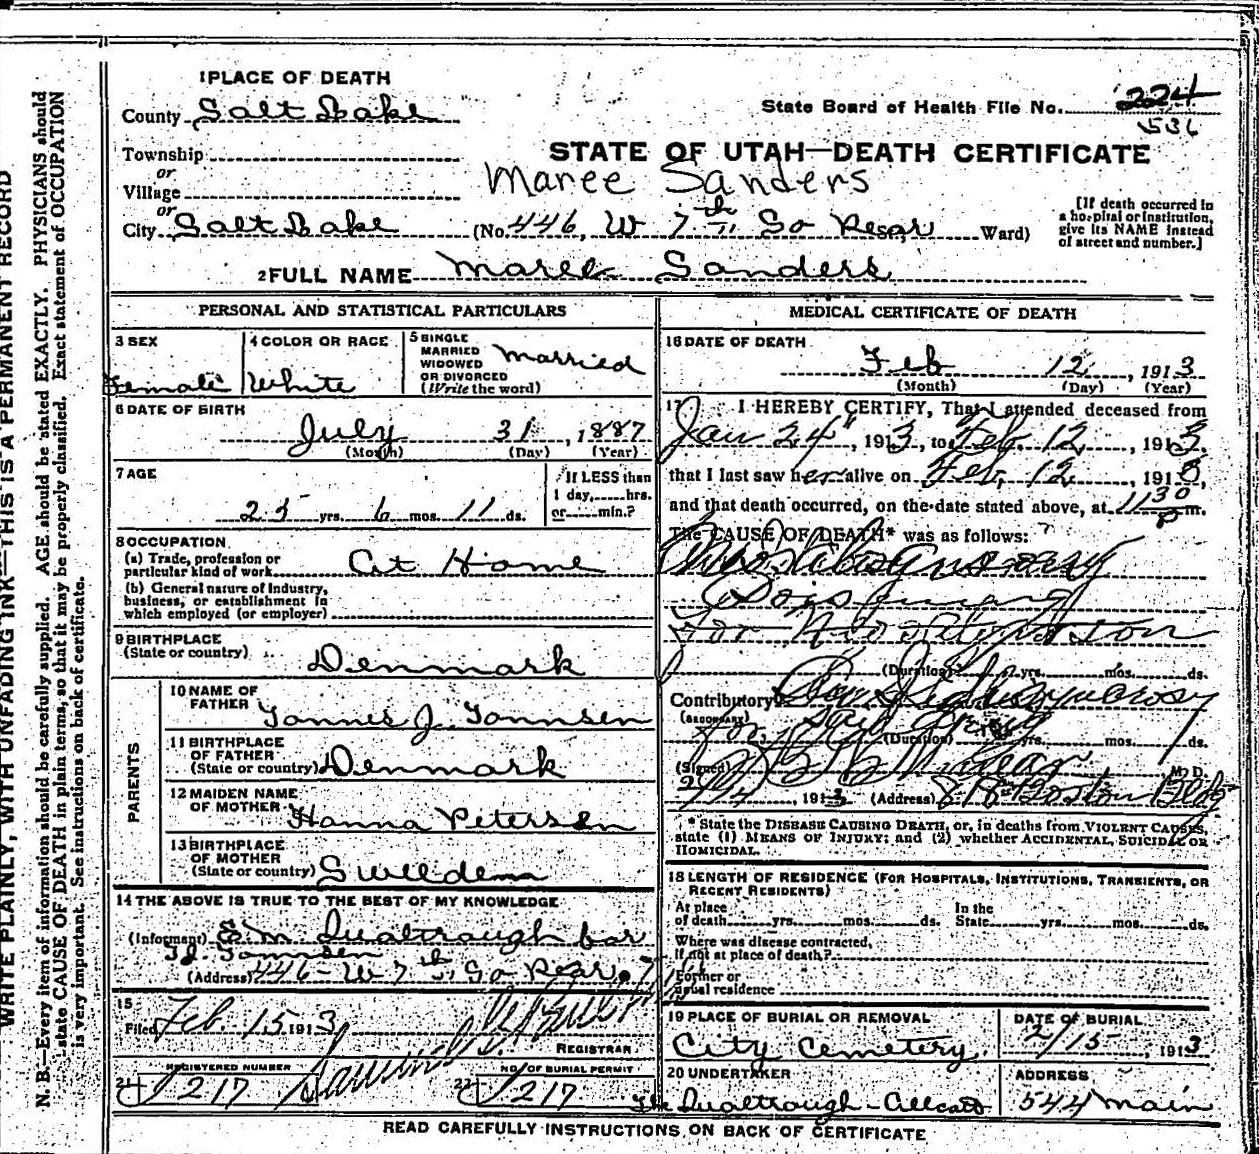 WRITE PLAINLY, WITH UNFADING INK—THIS IS A PERMANENT RECORD
N. B.—Every item of information should be carefully supplied. AGE should be stated EXACTLY. PHYSICIANS should
state CAUSE OF DEATH in plain terms, so that it may be properly classified. Exact statement of OCCUPATION
is very important. See instructions on back of certificate.
1 PLACE OF DEATH
County Salt Lake
State Board of Health File No. 224
536
Township
or
Village
or
STATE OF UTAH—DEATH CERTIFICATE
Maree Sanders
City Salt Lake (No. 446, W 7th So Rear Ward)
[If death occurred in
a hospital or institution,
give its NAME instead
of street and number.]
2 FULL NAME Maree Sanders
PERSONAL AND STATISTICAL PARTICULARS
3 SEX
Female
4 COLOR OR RACE
White
5 SINGLE
MARRIED
WIDOWED
OR DIVORCED
(Write the word)
Married
6 DATE OF BIRTH
July 31, 1887
(Month) (Day) (Year)
7 AGE
25 yrs. 6 mos. 11 ds.
If LESS than
1 day,......hrs.
or......min.?
8 OCCUPATION
(a) Trade, profession or
particular kind of work At Home
(b) General nature of industry,
business, or establishment in
which employed (or employer)
9 BIRTHPLACE
(State or country)
Denmark
PARENTS
10 NAME OF
FATHER
J.
11 BIRTHPLACE
OF FATHER
(State or country) Denmark
12 MAIDEN NAME
OF MOTHER
Hanna Petersen
13 BIRTHPLACE
OF MOTHER
(State or country) Sweeden
14 THE ABOVE IS TRUE TO THE BEST OF MY KNOWLEDGE
(Informant) E. M. Qualtrough for
(Address) 446 - W 7th So Rear
15
Filed Feb. 15 1913
REGISTRAR
REGISTERED NUMBER
217
NO. OF BURIAL PERMIT
217
MEDICAL CERTIFICATE OF DEATH
16 DATE OF DEATH
Feb 12, 1913
(Month) (Day) (Year)
17 I HEREBY CERTIFY, That I attended deceased from
Jan 24", 1913, to Feb. 12, 1913,
that I last saw her alive on Feb. 12, 1913,
and that death occurred, on the date stated above, at 11 30 P m.
The CAUSE OF DEATH* was as follows:
(Duration) yrs. mos. ds.
Contributory
(SECONDARY)
(Duration) yrs. mos. ds.
(Signed) M. D.
, 191 (Address) 818 Boston Bldg
* State the DISEASE CAUSING DEATH, or, in deaths from VIOLENT CAUSES,
state (1) MEANS OF INJURY; and (2) whether ACCIDENTAL, SUICIDAL OR
HOMICIDAL.
18 LENGTH OF RESIDENCE (FOR HOSPITALS, INSTITUTIONS, TRANSIENTS, OR
RECENT RESIDENTS)
At place
of death yrs. mos. ds.
In the
State yrs. mos. ds.
Where was disease contracted,
If not at place of death?
Former or
usual residence
19 PLACE OF BURIAL OR REMOVAL
City Cemetery.
DATE OF BURIAL
2/15, 1913
20 UNDERTAKER
The Qualtrough-Allcott
ADDRESS
544 Main
READ CAREFULLY INSTRUCTIONS ON BACK OF CERTIFICATE